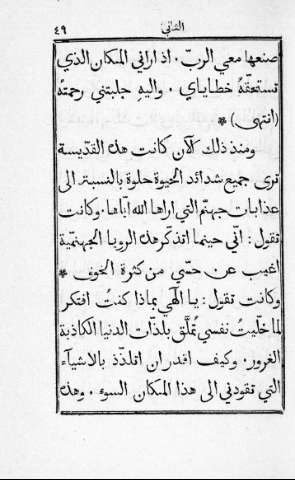 الثاني ٤٩
صنعها معي الربّ. اذ اراني المكان الذي
تستحقّهُ خطاياي. واليهِ جلبتني رحمتهُ
(انتهى) *
ومنذ ذلك الآن كانت هذه القدّيسة
ترى جميع شدائد الحيوة حلوة بالنسبة الى
عذابات جهنّم التي اراها الله اياها. وكانت
تقول: انّي حينما اتذكر هذه الرويا الجهنّمية
اغيب عن حسّي من كثرة الخوف *
وكانت تقول: يا الٓهي بماذا كنتُ افتكر
لما خلّيتُ نفسي تملّق بلذّات الدنيا الكاذبة
الغرور. وكيف اقدر ان اتلذّذ بالاشيآء
التي تقودني الى هذا المكان السوء. وهذه